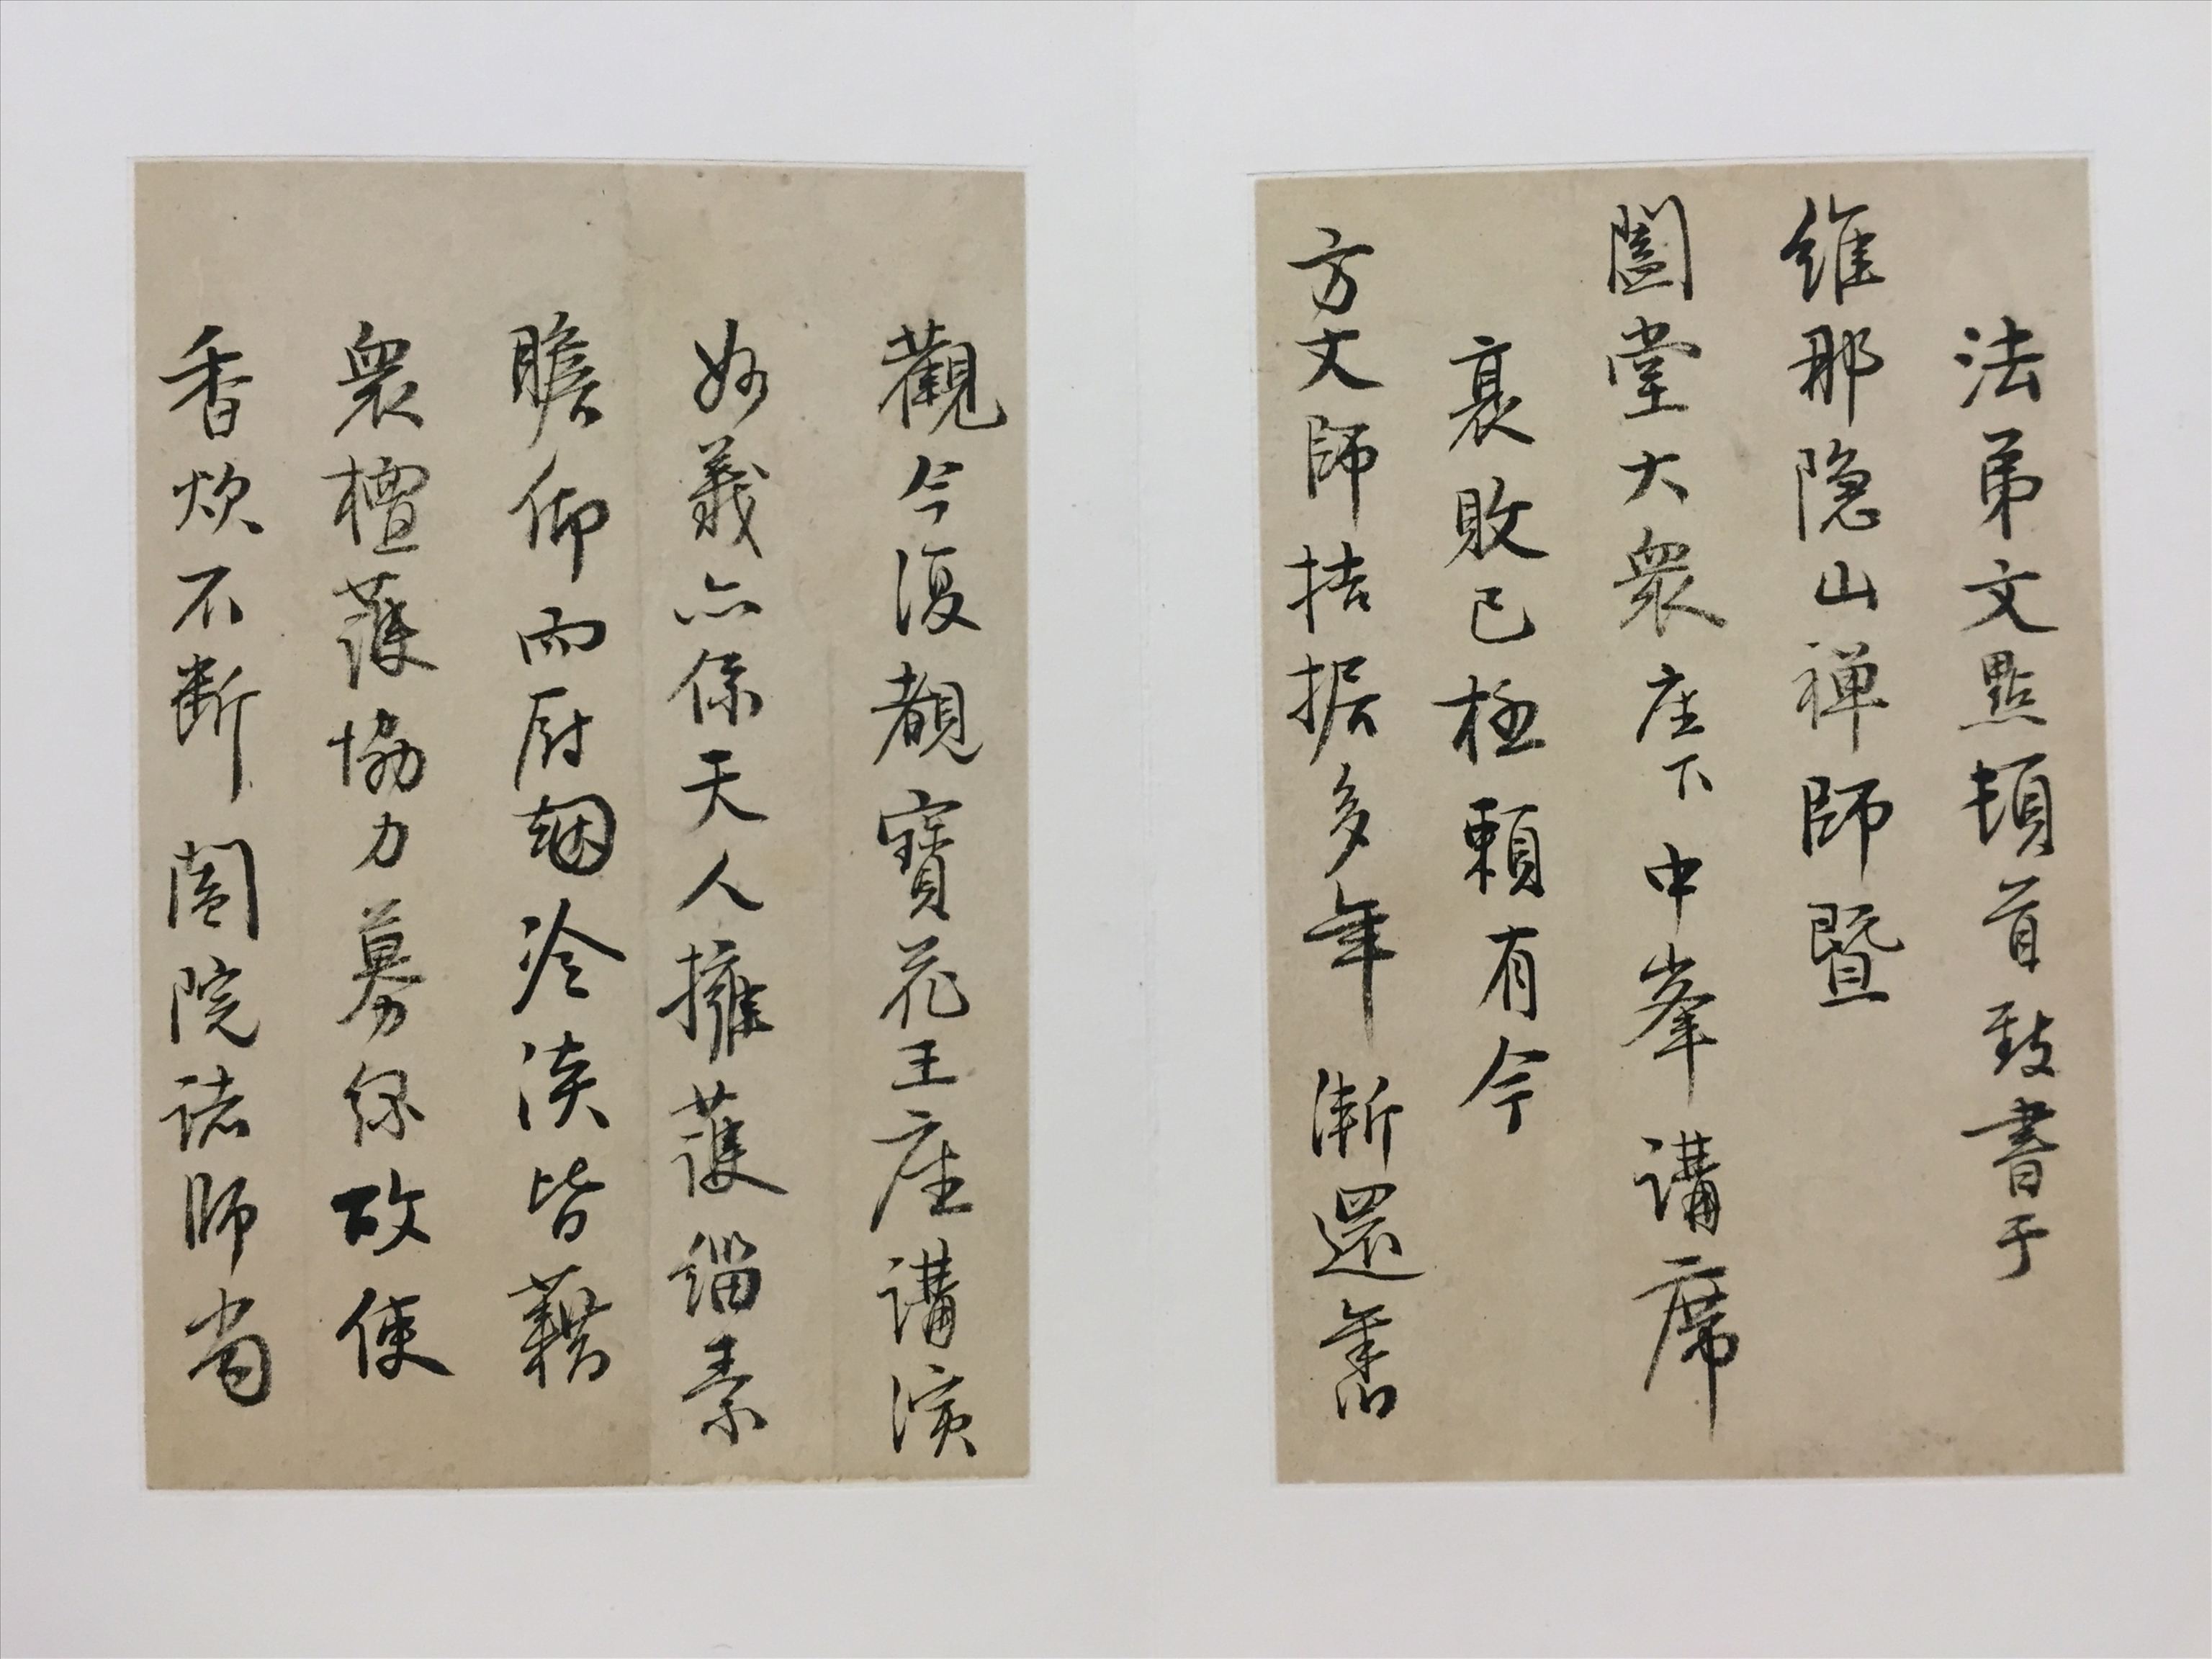 法弟文點頓首致書于
維那隐山禅師暨
闔堂大衆座下中峯講席
衰敗已極賴有今
方丈師拮据多年漸還舊
觀今復覩寶花王座講演
妙義亦係天人擁護緇素
瞻仰而厨烟冷淡皆藉
衆檀護協力募化故使
香炊不断闔院诸师尚